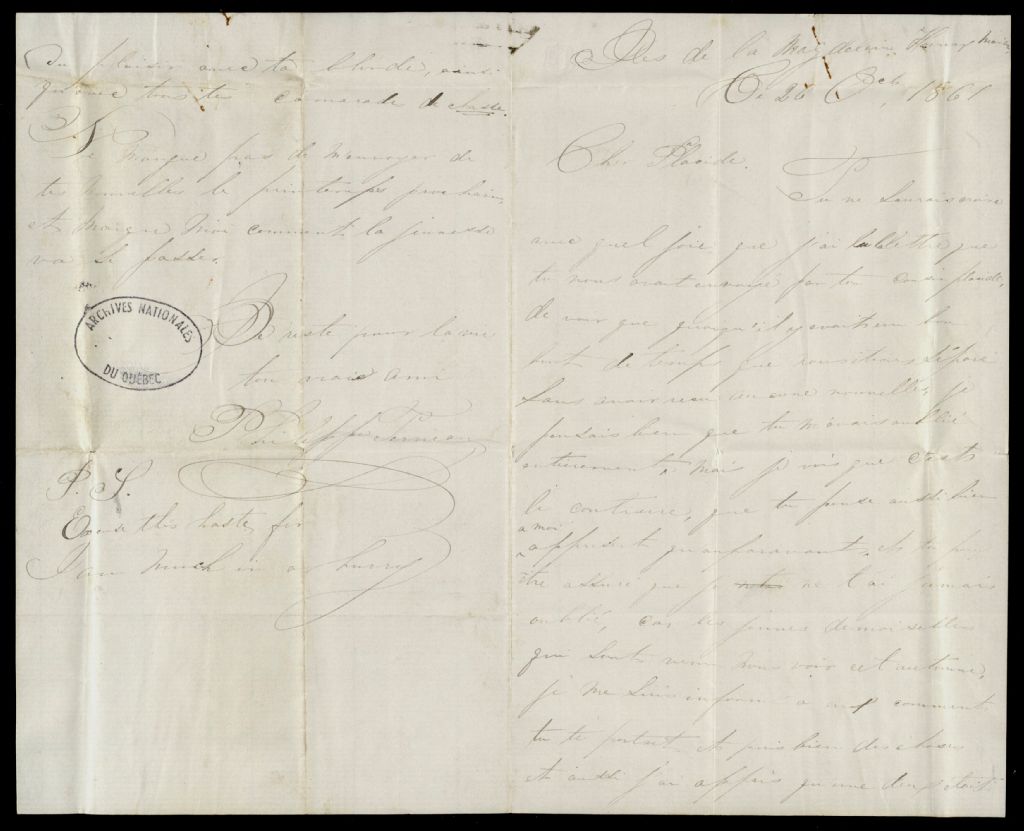 Iles de la Magdeleine
Ce 26 Bcb, 1861
Cher Placide.
Tu ne saurais croire
avec quel joie que j'ai lu la lettre que
tu nous avait envoyé par ton cousin placide,
de voir que quoiqu'il y avait un bon
bout de temps que nous étions séparé
sans avoir recu aucune nouvelles, je
pensais bien que tu m'avais oublié
entierement, mais je vois que c'est
le contraire, que tu pense aussi bien
a moi
apresent qu'auparavant. Et tu peux
être assuré que je ne t'ai jamais
oublié, car les jeunes demoiselles
qui sont venu nous voir cet automne,
je me suis informé a comment
tu te portait et puis bien des choses
et aussi j'ai appris qu'une
du plaisir avec ta blonde, ainsi
qu'avec tous tes camarade de classe.
Ne manque pas de m'envoyer de
tes nouvelles le printemps prochain,
et marque moi comment la jeunesse
va se passe.
ARCHIVES NATIONALES
DU QUÉBEC
Je reste pour la vie
ton vraie ami
Philippe
P. S.
Excuse this haste, for
I am much in a hurry